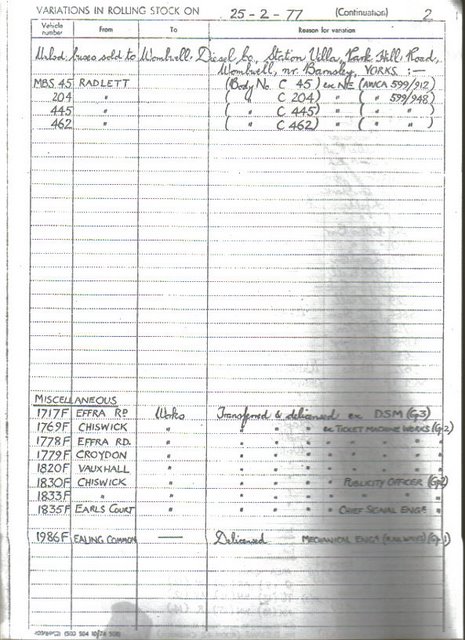 VARIATIONS IN ROLLING STOCK ON 25-2-77 (Continuation) 2
Vehicle number From To Reason for variation
buses sold to Wombwell Diesel Co, Station Villa, Park Hill Road,
Wombwell, nr. Barnsley, YORKS. :—
MBS. 45 RADLETT (Body No. C 45) ex (AWCA 599/912)
204 " ( " C 204) " ( " 599/948)
445 " ( " C 445) " ( " " )
462 " ( " C 462) " ( " " )
MISCELLANEOUS
1717F EFFRA RD Works Transferred & delicensed ex DSM (Gp3)
1769F CHISWICK " " " " ex TICKET MACHINE WORKS (Gp2)
1778F EFFRA RD. " " " " " " " "
1779F CROYDON " " " " " " " "
1820F VAUXHALL " " " " " " " "
1830F CHISWICK " " " " " PUBLICITY OFFICER (Gp2)
1833F " " " " " " " " "
1835F EARLS COURT " " " " " CHIEF SIGNAL ENGR "
1986F EALING COMMON — Delicensed MECHANICAL ENGR (RAILWAYS) (Gp1)